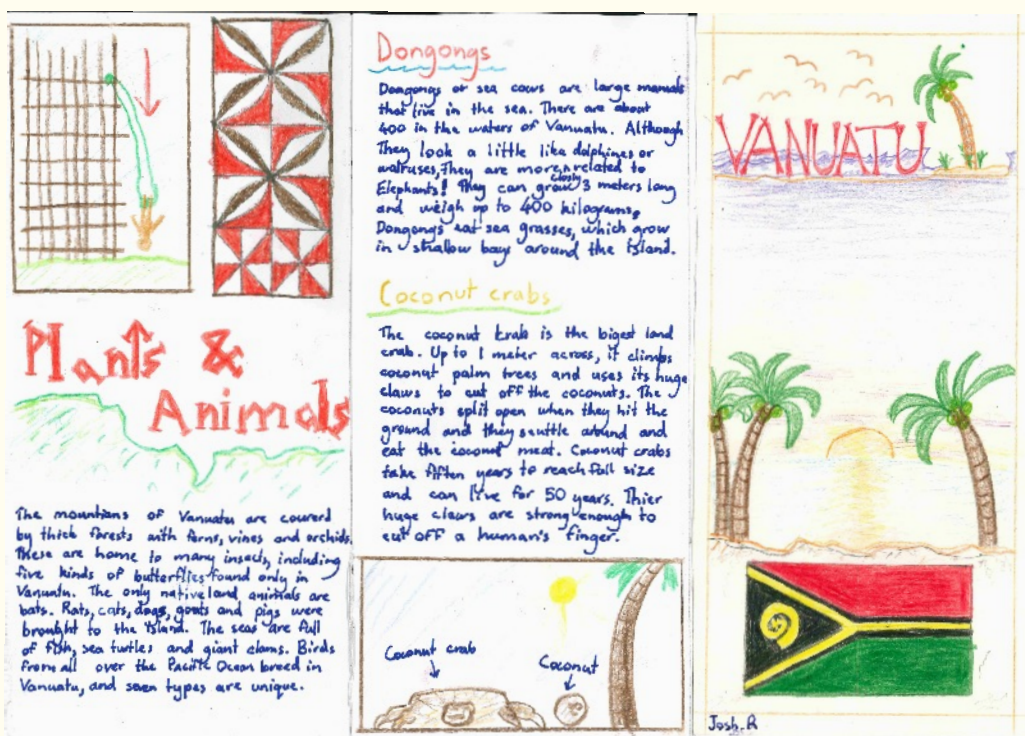 Plants &
Animals
The mountians of Vanuatu are covered
by thick forests with ferns, vines and orchids.
These are home to many insects, including
five kinds of butterflies found only in
Vanuatu. The only native land animals are
bats. Rats, cats, dogs, goats and pigs were
brought to the island. The seas are full
of fish, sea turtles and giant clams. Birds
from all over the Pacific Ocean breed in
Vanuatu, and seven types are unique.
Dongongs
Dongongs or sea cows are large mamals
that live in the sea. There are about
400 in the waters of Vanuatu. Although
They look a little like dolphines or
walruses, They are more closly related to
Elephants! They can grow 3 meters long
and weigh up to 400 kilograms,
Dongongs eat sea grasses, which grow
in shallow bays around the island.
Coconut crabs
The coconut krab is the bigest land
crab. Up to 1 meter across, it climbs
coconut palm trees and uses its huge
claws to cut off the coconuts. The
coconuts split open when they hit the
ground and they scuttle around and
eat the coconut meat. Coconut crabs
take fiften years to reach full size
and can live for 50 years. Thier
huge claws are strong enough to
cut off a human's finger.
Coconut crab
Coconut
VANUATU
Josh.R